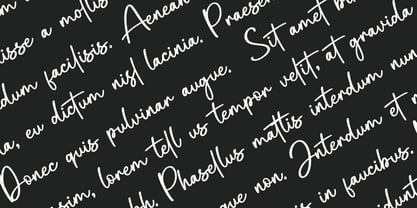 isse a mollis
dum facilisis. Aenean
a, eu dictum nisl lacinia. Praesen
Donec quis pulvinar augue. Sit amet
sim, lorem tell us tempor velit, at gravida
bh. Phasellus mattis interdum nun
que non. Interdum et
is in faucibus.